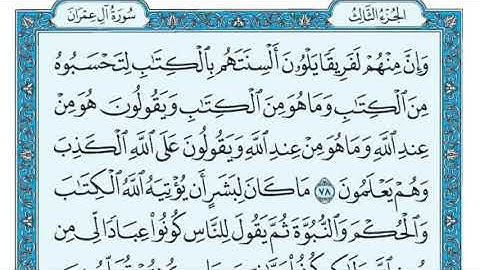 الجزء الثالث
سورة آل عمران
وَإِنَّ مِنْهُمْ لَفَرِيقًا يَلْوُۥنَ أَلْسِنَتَهُم بِالْكِتَٰبِ لِتَحْسَبُوهُ
مِنَ الْكِتَٰبِ وَمَا هُوَ مِنَ الْكِتَٰبِ وَيَقُولُونَ هُوَ مِنْ
عِندِ اللَّهِ وَمَا هُوَ مِنْ عِندِ اللَّهِ وَيَقُولُونَ عَلَى اللَّهِ الْكَذِبَ
وَهُمْ يَعْلَمُونَ ٧٨ مَا كَانَ لِبَشَرٍ أَن يُؤْتِيَهُ اللَّهُ الْكِتَٰبَ
وَالْحُكْمَ وَالنُّبُوَّةَ ثُمَّ يَقُولَ لِلنَّاسِ كُونُوا۟ عِبَادًا لِّى مِن